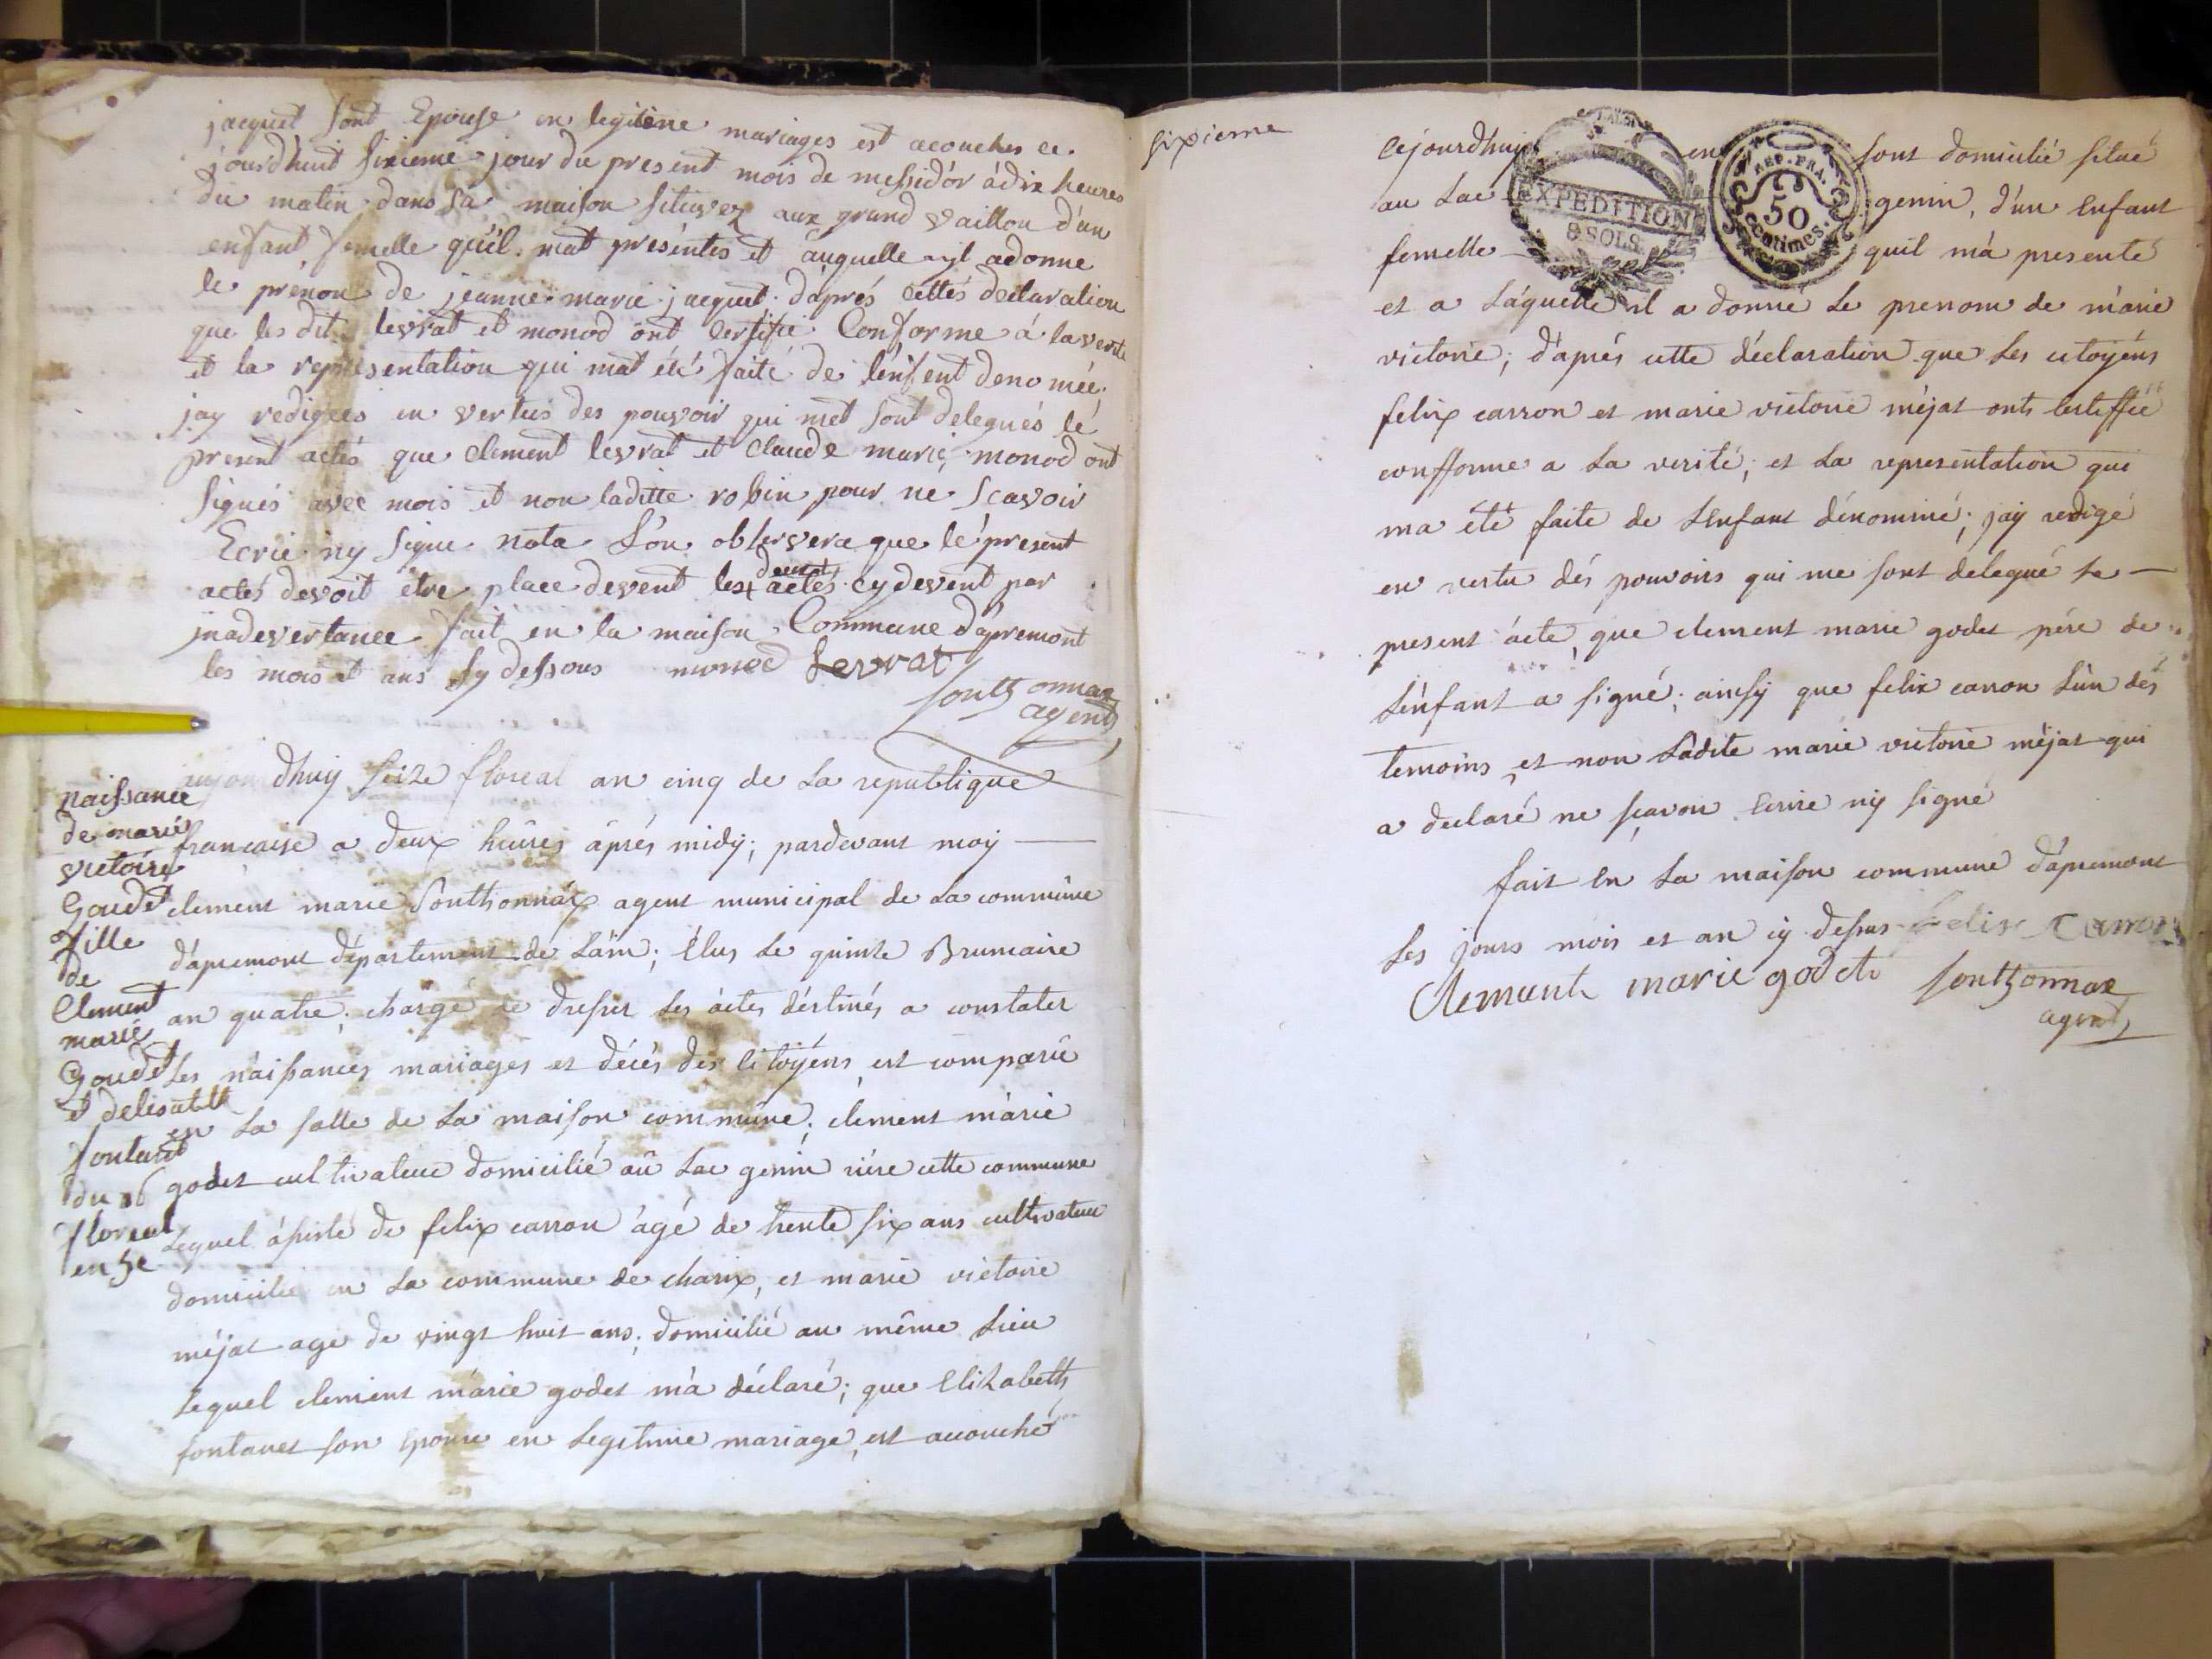 jacquet sont Epouse en legiteme mariages est acouches ce.
jourdhuit sixieme jour du present mois de messidor à dix heures
du matin dans sa maison situvez aux grand vaillon d'un
enfant femelle qu'il mat presentes et auquelle ayl adonne
le prénon de jeanne marie jacquet d'aprés cettes declaration
que les dits levrat et monod ont certifié Conforme à la verite
et la representation qui mat été faité de l'enfent denomée.
jay rediges en vertus des pouvoir qui met sont delegués lé
present actés que clement levrat et claude marie monod ont
signés avec mois et non laditte robin pour ne scavoir
Ecrie ny signe nota L'on observera que lé present
actés devoit étre place devent les deux actés cy devent par
inadevertance fait en la maison Commune d'apremont
les mois et ans sy dessous monod Levrat
sonthonnax
agent
naissance
de marie
victoire
Goudet
fille
de
Clement
marie
Goudet
et delisabett
fontanet
du 16
floreal
en 5e
dhuy seize floreal an cinq de la republique
francaise a deux heures áprés midy; pardevant moy —
clement marie Sonthonnáx agent municipal de la commune
d'apremont département de Láin; Élus le quinze Brumaire
an quatre; chargé de dresser les áctes déstinés a constater
Les náissances mariages et décés des Citoÿens est comparu
en La salle de La maison commune; clement márie
godet cultivateur domicilié aû Lac genin riére cette commune
Lequel ássisté de felix carron ágé de trente six ans cultivateur
domicilié en La commune de charix, et marie victoire
méjat age de vingt huit ans, domicilié au même Lieu
Lequel clement márie godet m'a déclaré; que Elizabeth
fontanet son Epouse en Legitime mariage, est acouché
sixieme
Cejourdhuy en sont domicilié situé
au Lac genin, d'un Enfant
femelle quil má presenté
EXPEDITION
8 SOLS
REP. FRA.
50
Centimes.
et a Láquelle il a donné Le prenom de márie
victoire; d'aprés cette déclaration que Les citoyéns
felix carron et marie victoire méjat onts certiffié
confforme a La verité; et La representation qui
ma été faite de LEnfant dénominé; jay redigé
en vertu dés pouvoirs qui me sont délegué Le —
present ácte, que clement marie godet pére de
Lénfant a signé; ainsy que felix carron Lùn dés
temoins et non Ladite marie victoire méjat qui
a declaré ne sçavoir Ecrire ny signé
fait En La maison commune d'apremont
Les jours mois et an cy dessus felix Carron
Clemant marie godet sonthonnax
agent